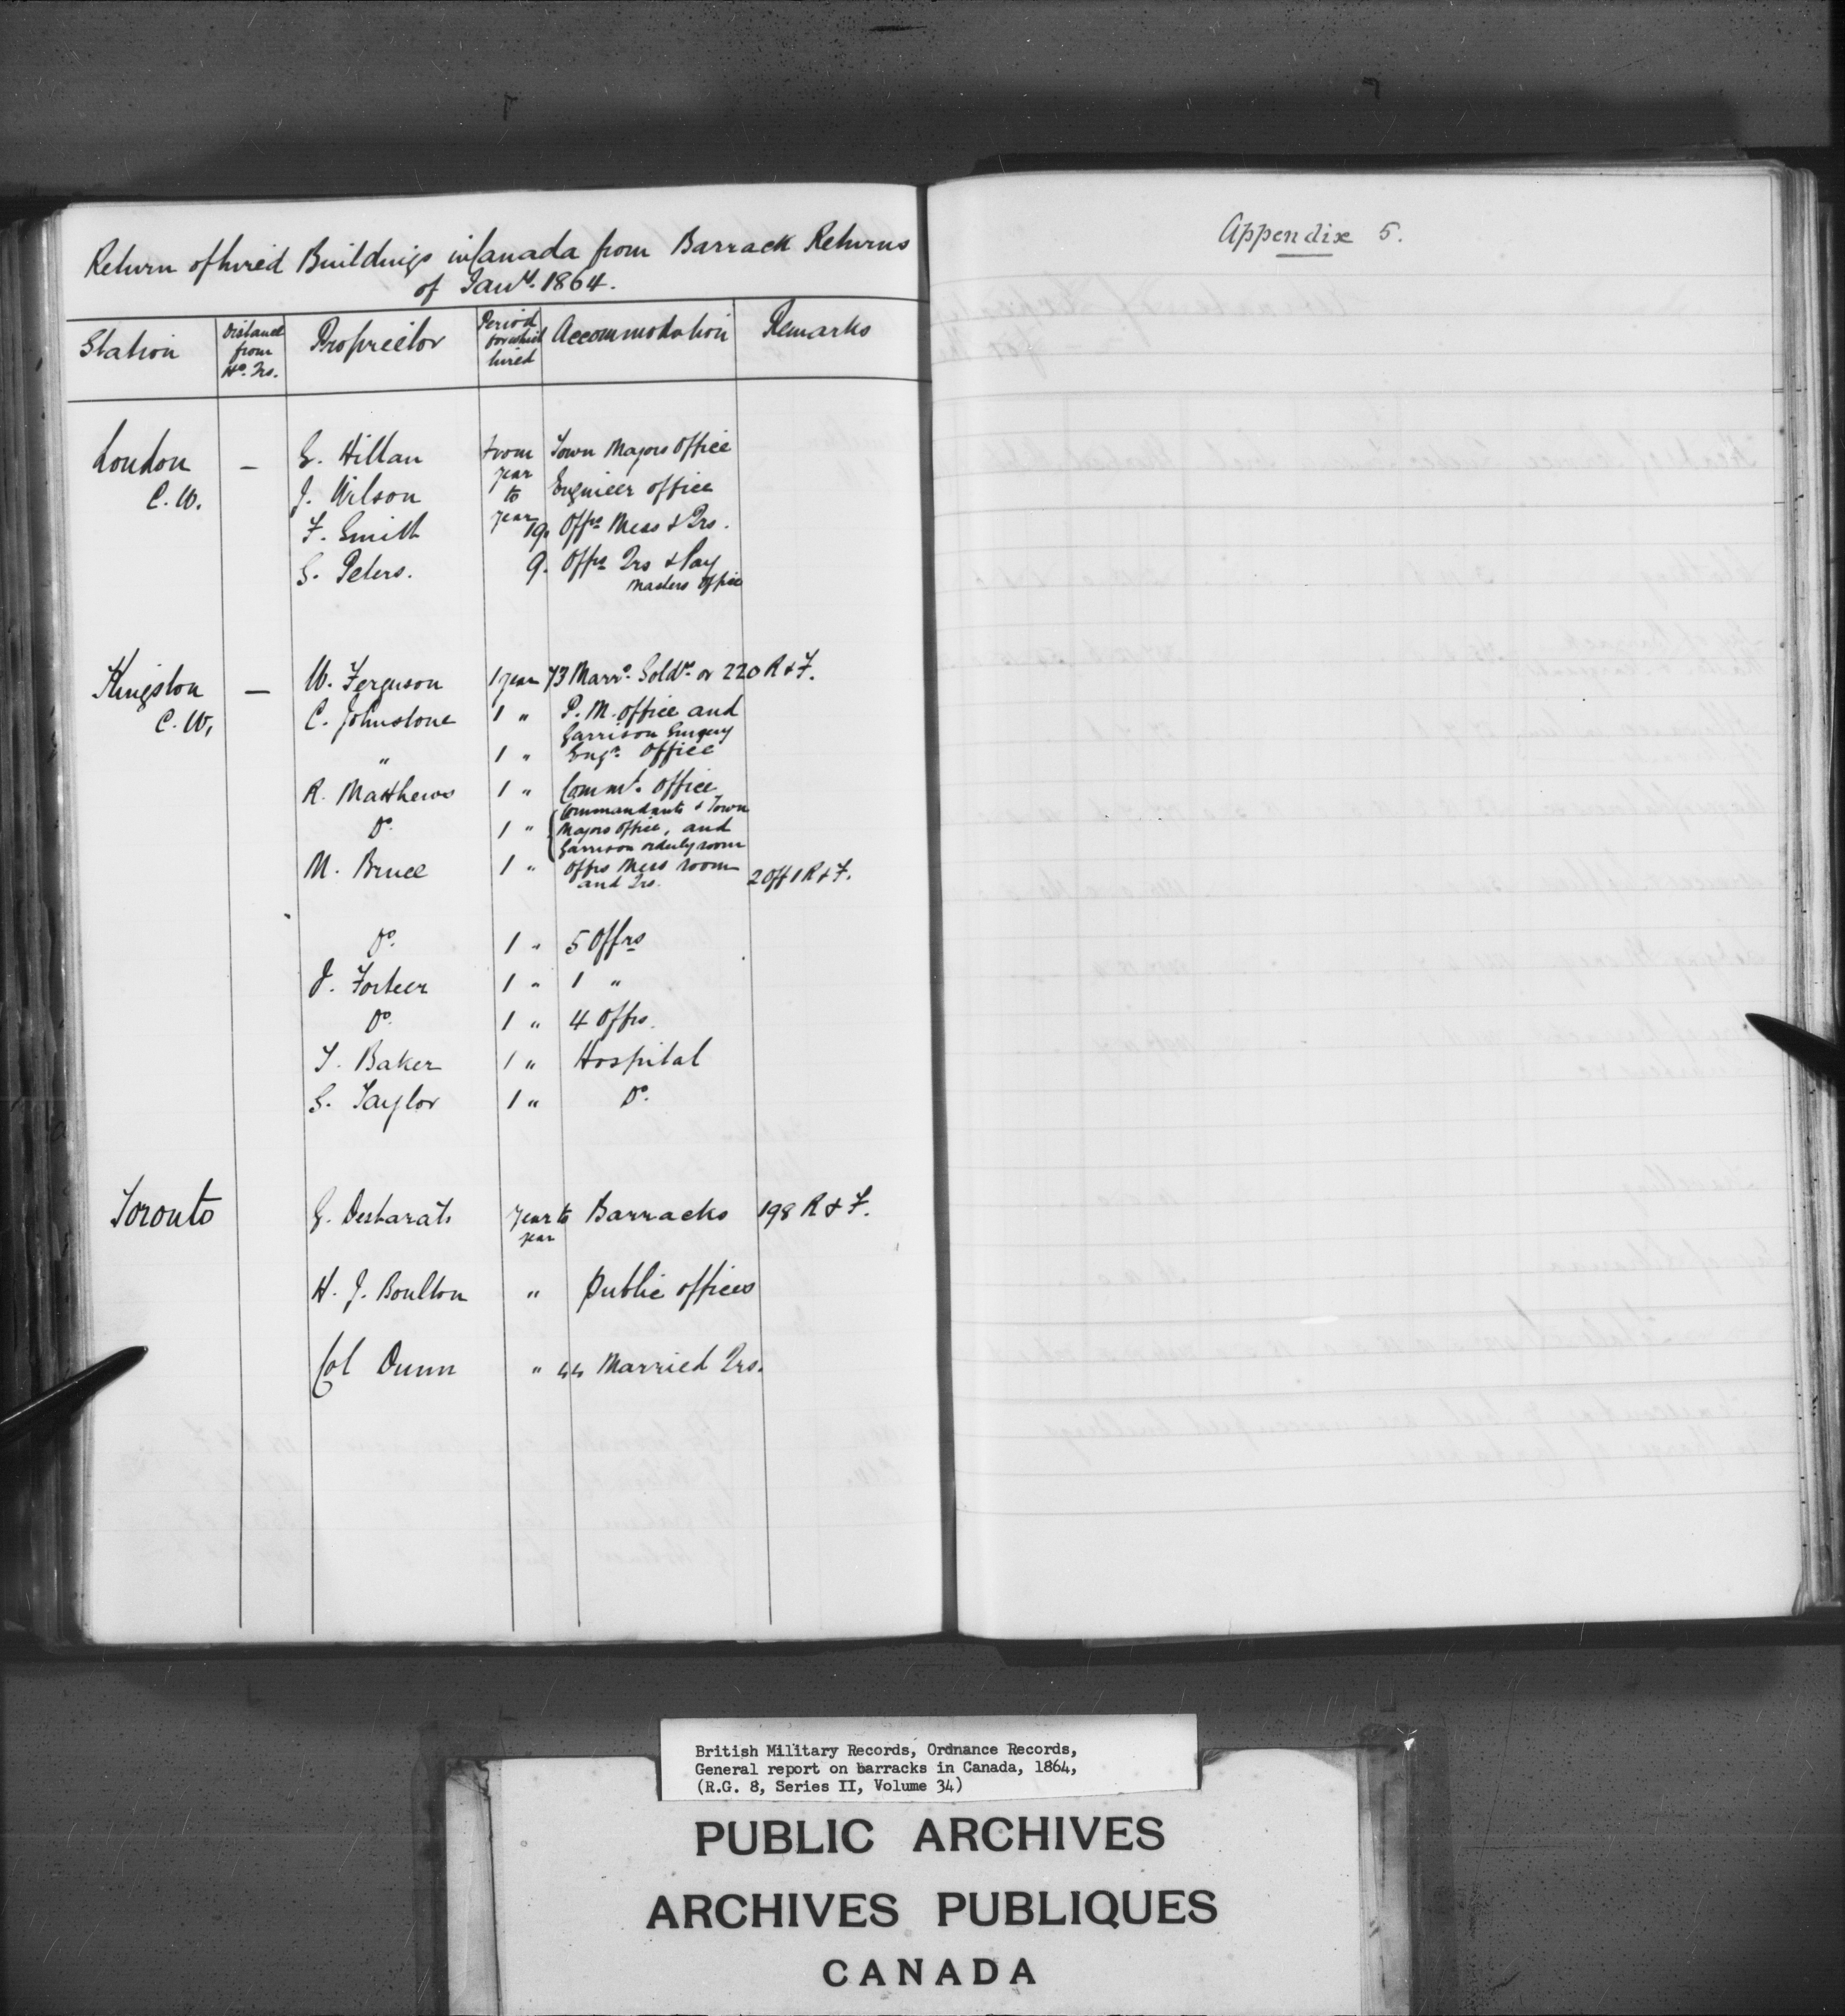 Return of hired Buildings in Canada from Barrack Returns
of Jany. 1864.
Station | Distance from Hd. Qrs. | Proprietor | Period for which hired | Accommodation | Remarks
London C.W. — G. Hillan from year to year Town Majors Office
J. Wilson Engineer office
F. Smith 19. Offrs Mess & Qrs.
G. Peters. 9. Offrs Qrs & Pay
Masters Office
Kingston C.W. — W. Ferguson 1 year 73 Marrd. Soldrs. or 220 R & F.
C. Johnstone 1 " P. M. office and
Garrison Surgery
" 1 " Engr. Office
R. Matthews 1 " Commt. Office
Do. 1 " Commandants & Town
Majors Office, and
Garrison orderly room
M. Bruce 1 " Offrs Mess room
and Qrs. 2 Off 1 R & F.
Do. 1 " 5 Offrs
J. Forteer 1 " 1 "
Do. 1 " 4 Offrs.
T. Baker 1 " Hospital
G. Taylor 1 " Do.
Toronto G. Desbarats year to year Barracks 198 R & F.
H. J. Boulton " Public offices
Col Dunn " 44 Married Qrs.
Appendix 5.
British Military Records, Ordnance Records,
General report on barracks in Canada, 1864,
(R.G. 8, Series II, Volume 34)
PUBLIC ARCHIVES
ARCHIVES PUBLIQUES
CANADA